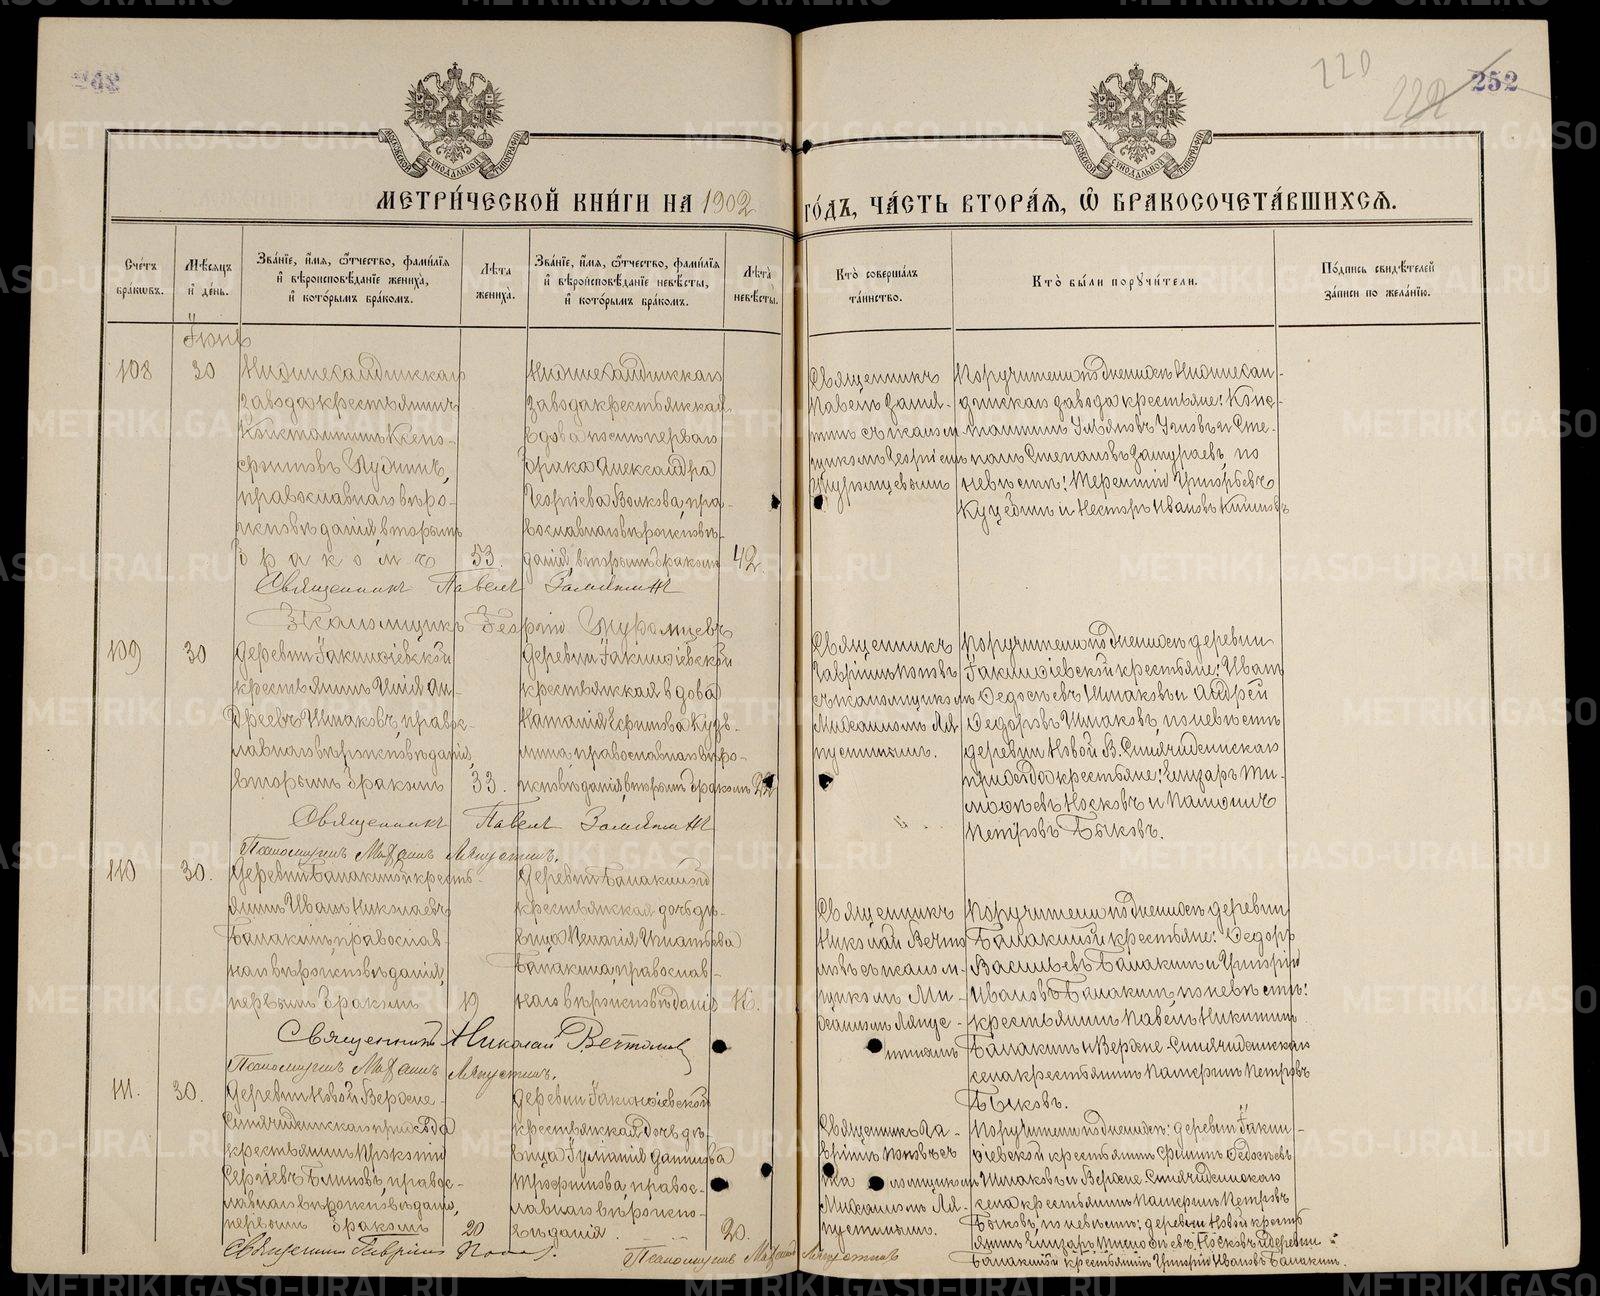 252
220
222
МЕТРИ́ЧЕСКОЙ КНИ́ГИ НА 1902 ГО́ДЪ, ЧА́СТЬ ВТОРА́Я, Ѿ БРАКОСОЧЕТА́ВШИХСЯ.
Сче́тъ бра́ковъ.
Мѣ́сяцъ и де́нь.
Зва́нїе, и́мя, о́тчество, фами́лїя и вѣроисповѣ́данїе жениха̀, и кото́рымъ бра́комъ.
Лѣ́та жениха̀.
Зва́нїе, и́мя, о́тчество, фами́лїя и вѣроисповѣ́данїе невѣ́сты, и кото́рымъ бра́комъ.
Лѣ́та невѣ́сты.
Кто̀ соверша́лъ та́инство.
Кто̀ бы́ли поручи́тели.
По́дпись свидѣ́телей за́писи по жела́нїю.
Іюнь
108
30
Нижнесалдинскаго
завода крестьянинъ
Константинъ Ксено-
фонтовъ
православнаго вѣро-
исповѣданія, вторымъ
бракомъ
53.
Нижнесалдинскаго
завода крестьянская
вдова послѣ перваго
брака Александра
Георгіева Волкова, пра-
вославнаго вѣроисповѣ-
данія, вторымъ бракомъ
42.
Священникъ
Павелъ Замя-
тинъ съ псалом-
щикомъ Георгіемъ
Поручители по женихѣ Нижнесал-
динскаго завода крестьяне: Конс-
тантинъ Ульяновъ и Сте-
панъ Степановъ Замураевъ, по
невѣстѣ: Терентій Григорьевъ
и Несторъ Ивановъ
Священникъ Павелъ Замятинъ
Псаломщикъ Георгій
109
30
Деревни Іакинѳіевской
крестьянинъ Илія Ан-
дреевъ Шпаковъ, правос-
лавнаго вѣроисповѣданія,
вторымъ бракомъ
33.
Деревни Іакинѳіевской
крестьянская вдова
Наталія Ефимова Кузь-
мина, православнаго вѣро-
исповѣданія, вторымъ бракомъ
Священникъ
Гавріилъ Поповъ
съ псаломщикомъ
Михаиломъ Ля-
пустинымъ.
Поручители по женихѣ деревни
Іакинѳіевской крестьяне: Иванъ
Ѳедосѣевъ Шпаковъ и Андрей
Ѳедоровъ Шпаковъ, по невѣстѣ
деревни Новой В. Синячихинскаго
прихода крестьяне: Елизаръ Ти-
моѳеевъ Носковъ и
Петровъ Быковъ.
Священникъ Павелъ Замятинъ
Псаломщикъ Михаилъ Ляпустинъ.
110
30.
Деревни Балакиной кресть-
янинъ Иванъ Николаевъ
Балакинъ, православ-
наго вѣроисповѣданія,
первымъ бракомъ
19
Деревни Балакиной
крестьянская дочь дѣ-
вица Пелагія Игнатьева
Балакина, православ-
наго вѣроисповѣданія
16.
Священникъ
Николай Вечто-
мовъ съ псалом-
щикомъ Ми-
хаиломъ Ляпус-
тинымъ
Поручители по женихѣ деревни
Балакиной крестьяне: Ѳедоръ
Васильевъ Балакинъ и Григорій
Ивановъ Балакинъ, по невѣстѣ:
крестьянинъ Павелъ Никитинъ
Балакинъ и Верхне-Синячихинскаго
села крестьянинъ Петровъ
Быковъ.
Священникъ Николай Вечтомовъ
Псаломщикъ Михаилъ Ляпустинъ.
111.
30.
Деревни Новой Верхне-
Синячихинскаго прихода
крестьянинъ Прокопій
Сергіевъ Блиновъ, правос-
лавнаго вѣроисповѣданія,
первымъ бракомъ
20
Деревни Іакинѳіевской
крестьянская дочь дѣ-
вица Іуліанія Данилова
Трофимова, правос-
лавнаго вѣроиспо-
вѣданія.
20.
Священникъ Га-
вріилъ Поповъ съ
псаломщикомъ
Михаиломъ Ля-
пустинымъ.
Поручители по женихѣ: деревни Іакин-
ѳіевской крестьянинъ Филипъ Ѳедосѣевъ
Шпаковъ и Верхне Синячихинскаго
села крестьянинъ Петровъ
Быковъ, по невѣстѣ: деревни Новой кресть-
янинъ Елизаръ Тимоѳеевъ Носковъ и деревни
Балакиной крестьянинъ Григорій Ивановъ Балакинъ.
Священникъ Гавріилъ Поповъ.
Псаломщикъ Михаилъ Ляпустинъ
METRIKI.GASO-URAL.RU